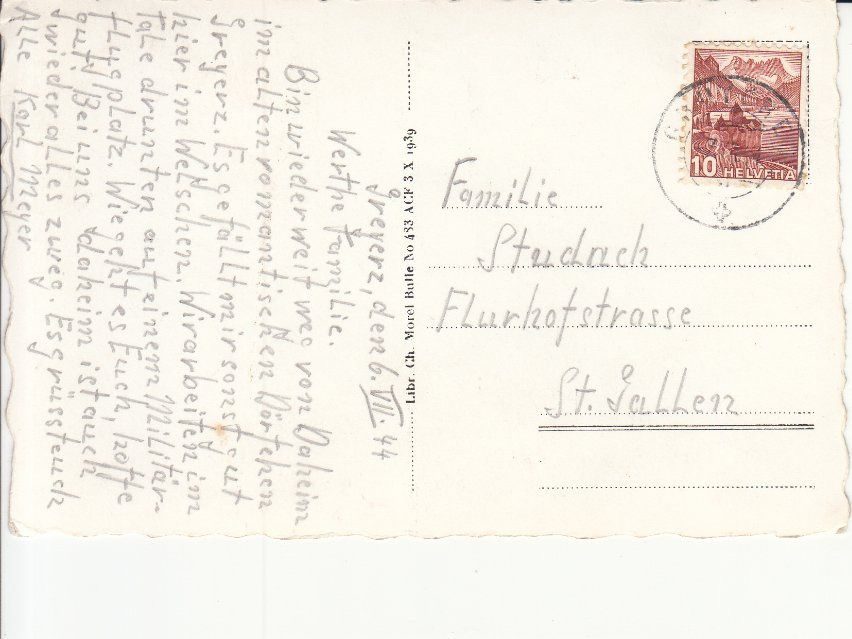 Greyerz, den 6. VII. 44
Werthe Familie.
Bin wieder weit weg von Daheim
im alten romantischen Dörfchen
Greyerz. Es gefällt mir sonst gut
hier im Welschen. Wir arbeiten im
Tale drunten auf einem Militär-
flugplatz. Wie geht es Euch, hoffe
gut? Bei uns daheim ist auch
wieder alles zweg. Es grüsst euch
Alle Karl Meyer
Libr. Ch. Morel Bulle No 483 ACF 3 X 1939
10 HELVETIA
Familie
Studach
Flurhofstrasse
St. Gallen